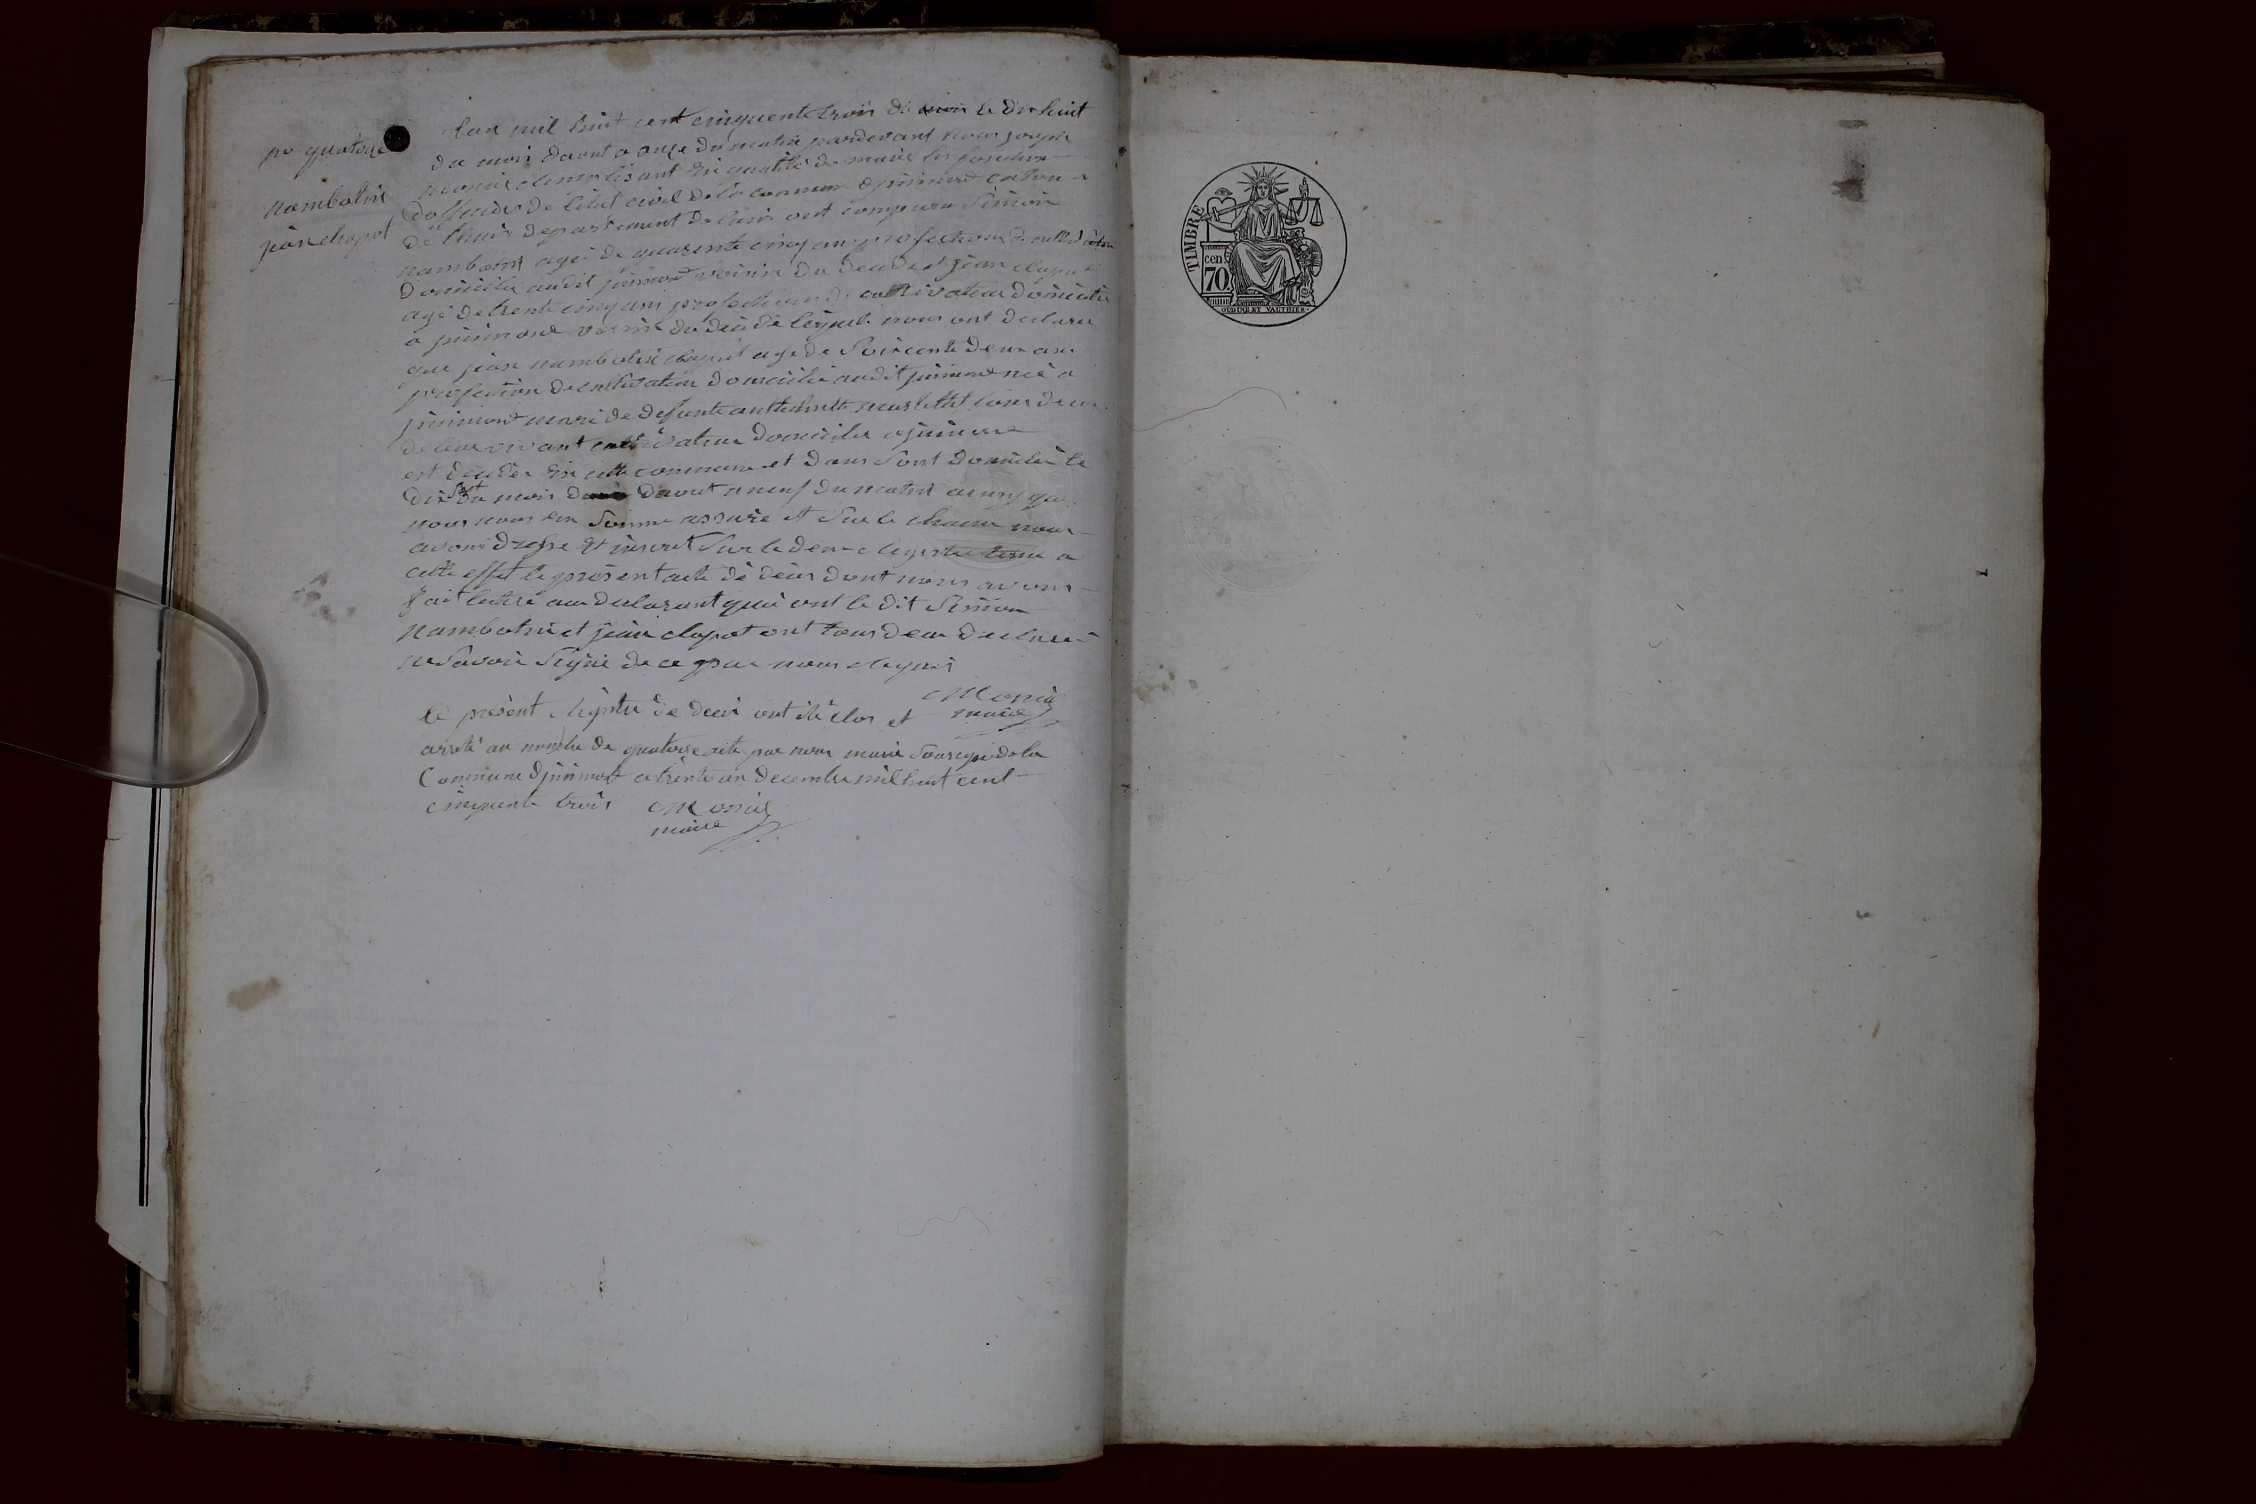 no quatorze
Nambotin
jean clapot
Lan mil huit cent cinquente trois di mois le dix huit
du mois davout a onze du matin pardevant nous joseph
monié maire fesant en qualité de maire les fonction
dofficier de letat civil de la commune djinimond canton
de lhuis departement de lain ont comparu Simion
nambotin agé de quarente cinq ans profection de cultivateur
domicilié audit jinimond voisin du decede et jean clapot
agé de trente cinq ans profection de cultivateur domicilié
a jinimond voisin du decede lequels nous ont declaré
que jean nambotin clapot age de Soixente deux ans
profection de cultivateur domicilié audit jinimond né a
jinimond mari de defunte anthelmette tous deux
de leur vivant cultivateur domicilié a jinimond
est decedé en cette commune et dans Sont domicile le
dix Sept du mois davout a neuf du matin ainsi que
nous nous en Somme assuré et Sur le chamt nous
avons dresse et inscrit Sur le deux registre tenu a
cette effet le présent acte de déces dont nous avons
fait lecture aux declarant qui ont le dit Simion
Nambotin et jean clapot ont tous deux declaré
ne Savoir Signé de ce par nous requis
Monié
maire
le présent registre de deces ont été clos et
arreté au nombre de quatorze acte par nous maire Sousigné de la
Commune djinimond ce trente un decembre mil huit cent
cinquente trois Monié
maire
TIMBRE
70
cen
OUDINÉ ET VAUTHIER